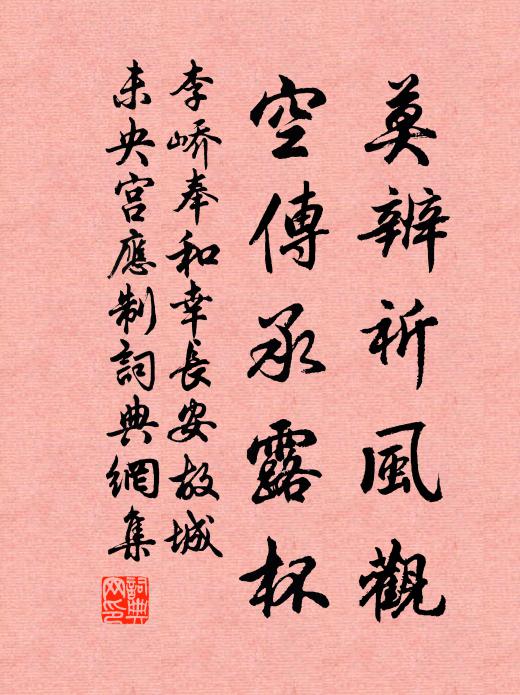 莫辨祈風觀
空傳承露杯
李嶠奉和幸長安故城
未央宮應制詞典網集
詞典網印